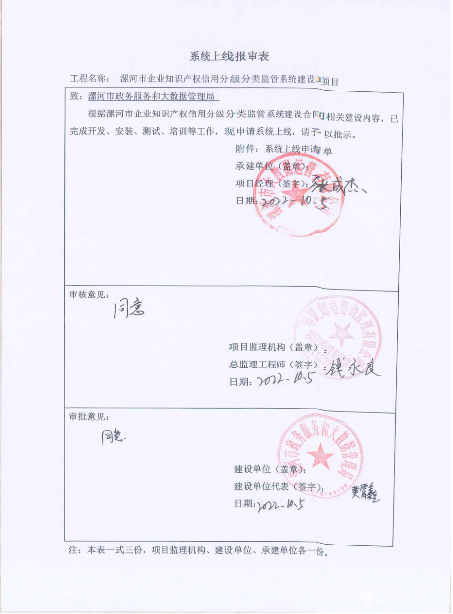 系统上线报审表
工程名称： 漯河市企业知识产权信用分级分类监管系统建设项目
致：漯河市政务服务和大数据管理局
根据漯河市企业知识产权信用分级分类监管系统建设合同相关建设内容，已
完成开发、安装、测试、培训等工作，现申请系统上线，请予以批示。
附件：系统上线申请单
承建单位（盖章）
项目经理（签字）：
日期：2022-10.5
审核意见：
同意
项目监理机构（盖章）：
总监理工程师（签字）：钱永良
日期：2022-10.5
审批意见：
同意
漯河市政务服务和大数据管理局
建设单位（盖章）：
建设单位代表（签字）：
日期：2022-10.5
注：本表一式三份，项目监理机构、建设单位、承建单位各一份。